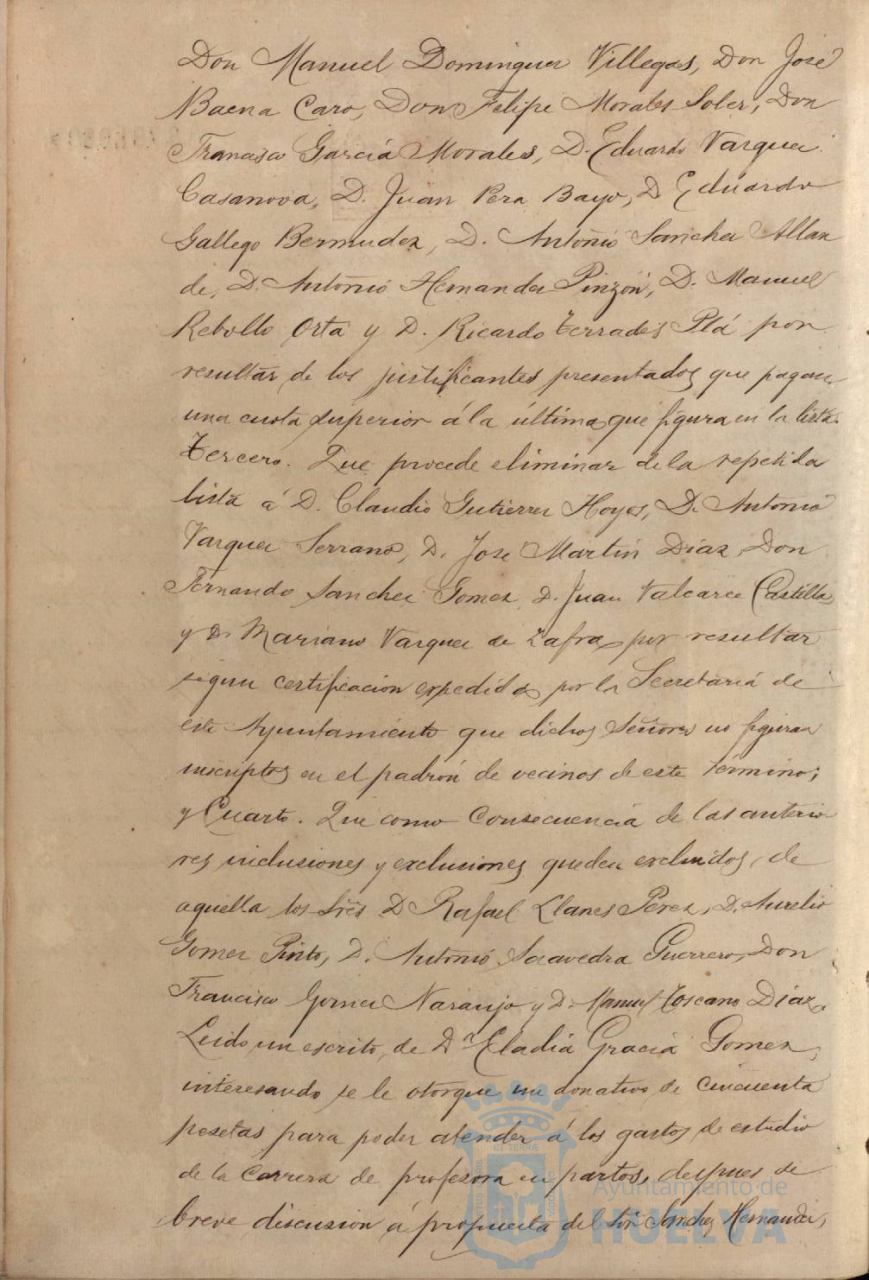 Don Manuel Dominguez Villegas, Don José
Baena Caro, Don Felipe Morales Soler, Don
Francisco García Morales, D. Eduardo Vazquez
Casanova, D. Juan Pera Bayo, D Eduardo
Gallego Bermudez, D. Antonio Sanchez Allan
de, D. Antonio Hernandez Pinzón, D. Manuel
Rebollo Orta y D. Ricardo Terrades Plá por
resultar de los justificantes presentados que pagan
una cuota superior á la última que figura en la lista.
Tercero. Que procede eliminar de la repetida
lista á D. Claudio Gutierrez Hoyos, D. Antonio
Vazquez Serrano, D. José Martin Diaz, Don
Fernando Sanchez Gomez, D. Juan Valcarce Castilla
y D. Mariano Vazquez de Zafra, por resultar
segun certificación expedida por la Secretaría de
este Ayuntamiento que dichos Señores no figuran
inscriptos en el padrón de vecinos de este término;
y Cuarto. Que como consecuencia de las anterio
res inclusiones y exclusiones quedan excluidos, de
aquella los Sres D Rafael Llanes Perez, D. Aurelio
Gomez Pinto, D. Antonio Saavedra Guerrero, Don
Francisco Gomez Naranjo y D. Manuel Toscano Díaz.
Leido un escrito, de Dª Eladia Gracia Gomez,
interesando se le otorgue un donativo de cincuenta
pesetas para poder atender á los gastos de estudio
de la carrera de profesora en partos, despues de
breve discusion á propuesta del Sor Sanchez Hernandez,
Ayuntamiento de
HUELVA